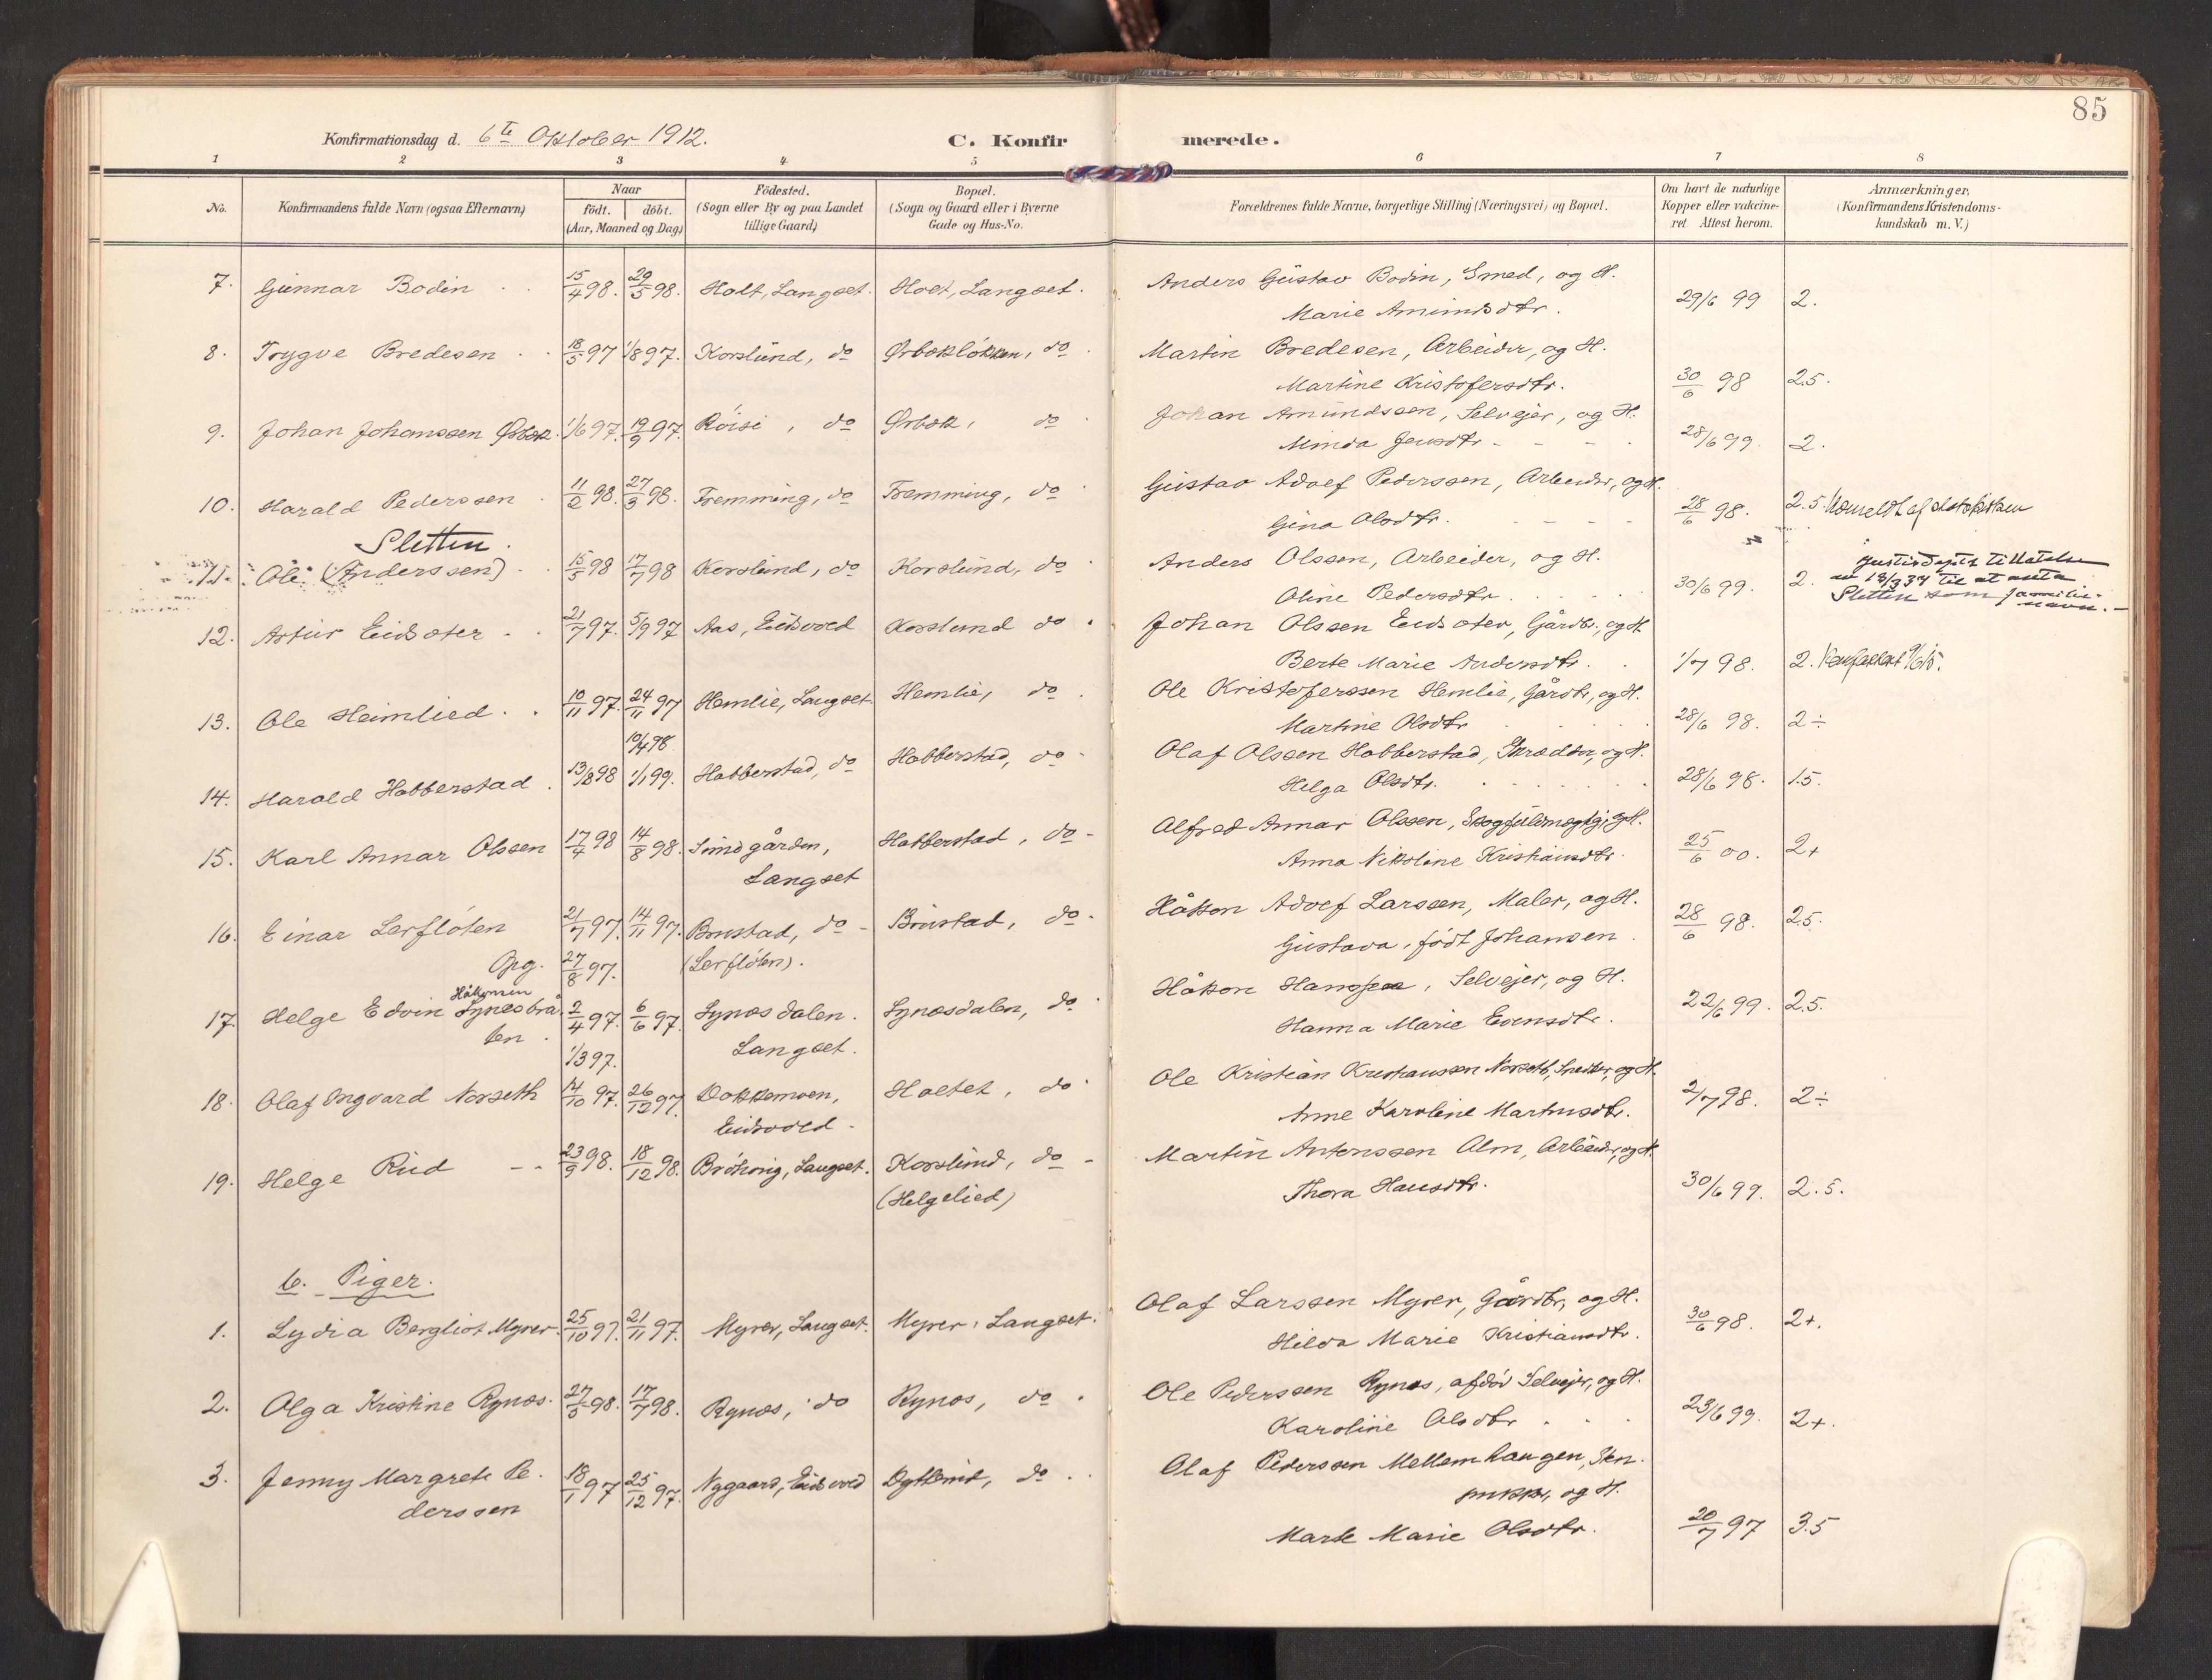 85
Konfirmationsdag d. 6te Oktober 1912. C. Konfirmerede.
1 2 3 4 5 6 7 8
No. Konfirmandens fulde Navn (ogsaa Efternavn) Naar födt. döbt. (Aar, Maaned og Dag) Födested. (Sogn eller By og paa Landet tillige Gaard) Bopæl. (Sogn og Gaard eller i Byerne Gade og Hus-No. Forældrenes fulde Navne, borgerlige Stilling (Næringsvei) og Bopæl. Om havt de naturlige Kopper eller vakcineret. Attest herom. Anmærkninger. (Konfirmandens Kristendomskundskab m. V.)
7. Gunnar Bodin 15/4 98. 29/5 98. Holt, Langset. Holt, Langset. Anders Gustav Bodin, Smed, og H.
Marie Amundsdtr. 29/6 99 2.
8. Trygve Bredesen 18/5 97 1/8 97. Korslund, do Ørbækløkken, do Martin Bredesen, Arbeider, og H.
Martine Kristofersdtr. 30/6 98 2.5.
9. Johan Johanssen Ørbæk. 1/6 97. 19/9 97. Röisi, do Ørbæk, do Johan Amundssen, Selvejer, og H.
Minda Jensdtr 28/6 99. 2.
10. Harald Pederssen 11/2 98. 27/3 98. Fremming, do Fremming, do Gustav Adolf Pederssen, Arbeider, og H.
Gina Olsdtr. 28/6 98. 2.5. Utmeldt af statskirken
Sletten.
11. Ole (Anderssen) 15/5 98 17/7 98 Korslund, do Korslund, do Anders Olssen, Arbeider, og H.
Oline Pedersdtr 30/6 99. 2. Justisdepts tillatelse
av 18/3 34 til at anta
Sletten som familie-
navn.-
12. Artur Eidsæter 21/7 97. 5/9 97 Aas, Eidsvold Korslund do Johan Olssen Eidsæter, Gårdbr., og H
Berte Marie Andersdtr. 1/7 98. 2.
13. Ole Heimlied 10/11 97. 24/11 97 Hemlie, Langset. Hemlie, do Ole Kristoferssen Hemlie, Gårdbr, og H.
Martine Olsdtr 28/6 98. 2÷
10/4 98.
14. Harald Habberstad 13/8 98 1/1 99. Habberstad, do Habberstad, do Olaf Olssen Habberstad, Skrædder, og H.
Helga Olsdtr. 28/6 98. 1.5.
15. Karl Annar Olssen 17/4 98 14/8 98. Sundgården,
Langset Habberstad, do Alfred Annar Olssen, Skogfuldmægtig, og H.
Anna Nikoline Kristiansdtr. 25/6 00. 2+
16. Einar Lerflöten 21/7 97. 14/11 97. Brustad, do
(Lerflöten). Brustad, do Håkon Adolf Larssen, Maler, og H.
Opg. 27/8 97. Gustava, født Johansen 28/6 98. 2.5.
Håkonsen
17. Helge Edvin Synesbrå
ten 2/4 97. 6/6 97. Synæsdalen.
Langset. Synæsdalen, do Håkon Hanssen, Selvejer, og H.
Hanna Marie Evensdtr. 22/6 99. 2.5.
1/3 97.
18. Olaf Ingvard Norseth 14/10 97. 26/12 97. Dokkemoen,
Eidsvold Holtet, do Ole Kristian Kristianssen Norseth, Snedker, og H.
Anne Karoline Martinsdtr. 2/7 98. 2÷
19. Helge Rud 23/9 98. 18/12 98. Bröhaug, Langset. Korslund, do
(Helgelied) Martin Antonssen Alm, Arbeider, og H.
Thora Hansdtr. 30/6 99. 2.5.
b. Piger.
1. Lydia Bergliot Myrer. 25/10 97. 21/11 97. Myrer, Langset. Myrer, Langset. Olaf Larssen Myrer, Gårdbr., og H.
Hilda Marie Kristiansdtr. 30/6 98. 2+.
2. Olga Kristine Rynæs. 27/5 98. 17/7 98. Rynæs, do Rynæs, do Ole Pederssen Rynæs, afdöd Selvejer, og H.
Karoline Olsdtr 23/6 99. 2+.
3. Jenny Margrete Pe-
derssen 18/1 97 25/12 97. Nygaard, Eidsvold do Olaf Pederssen Mellemhaugen, Sten-
pukker, og H.
Marte Marie Olsdtr. 20/7 97 3.5